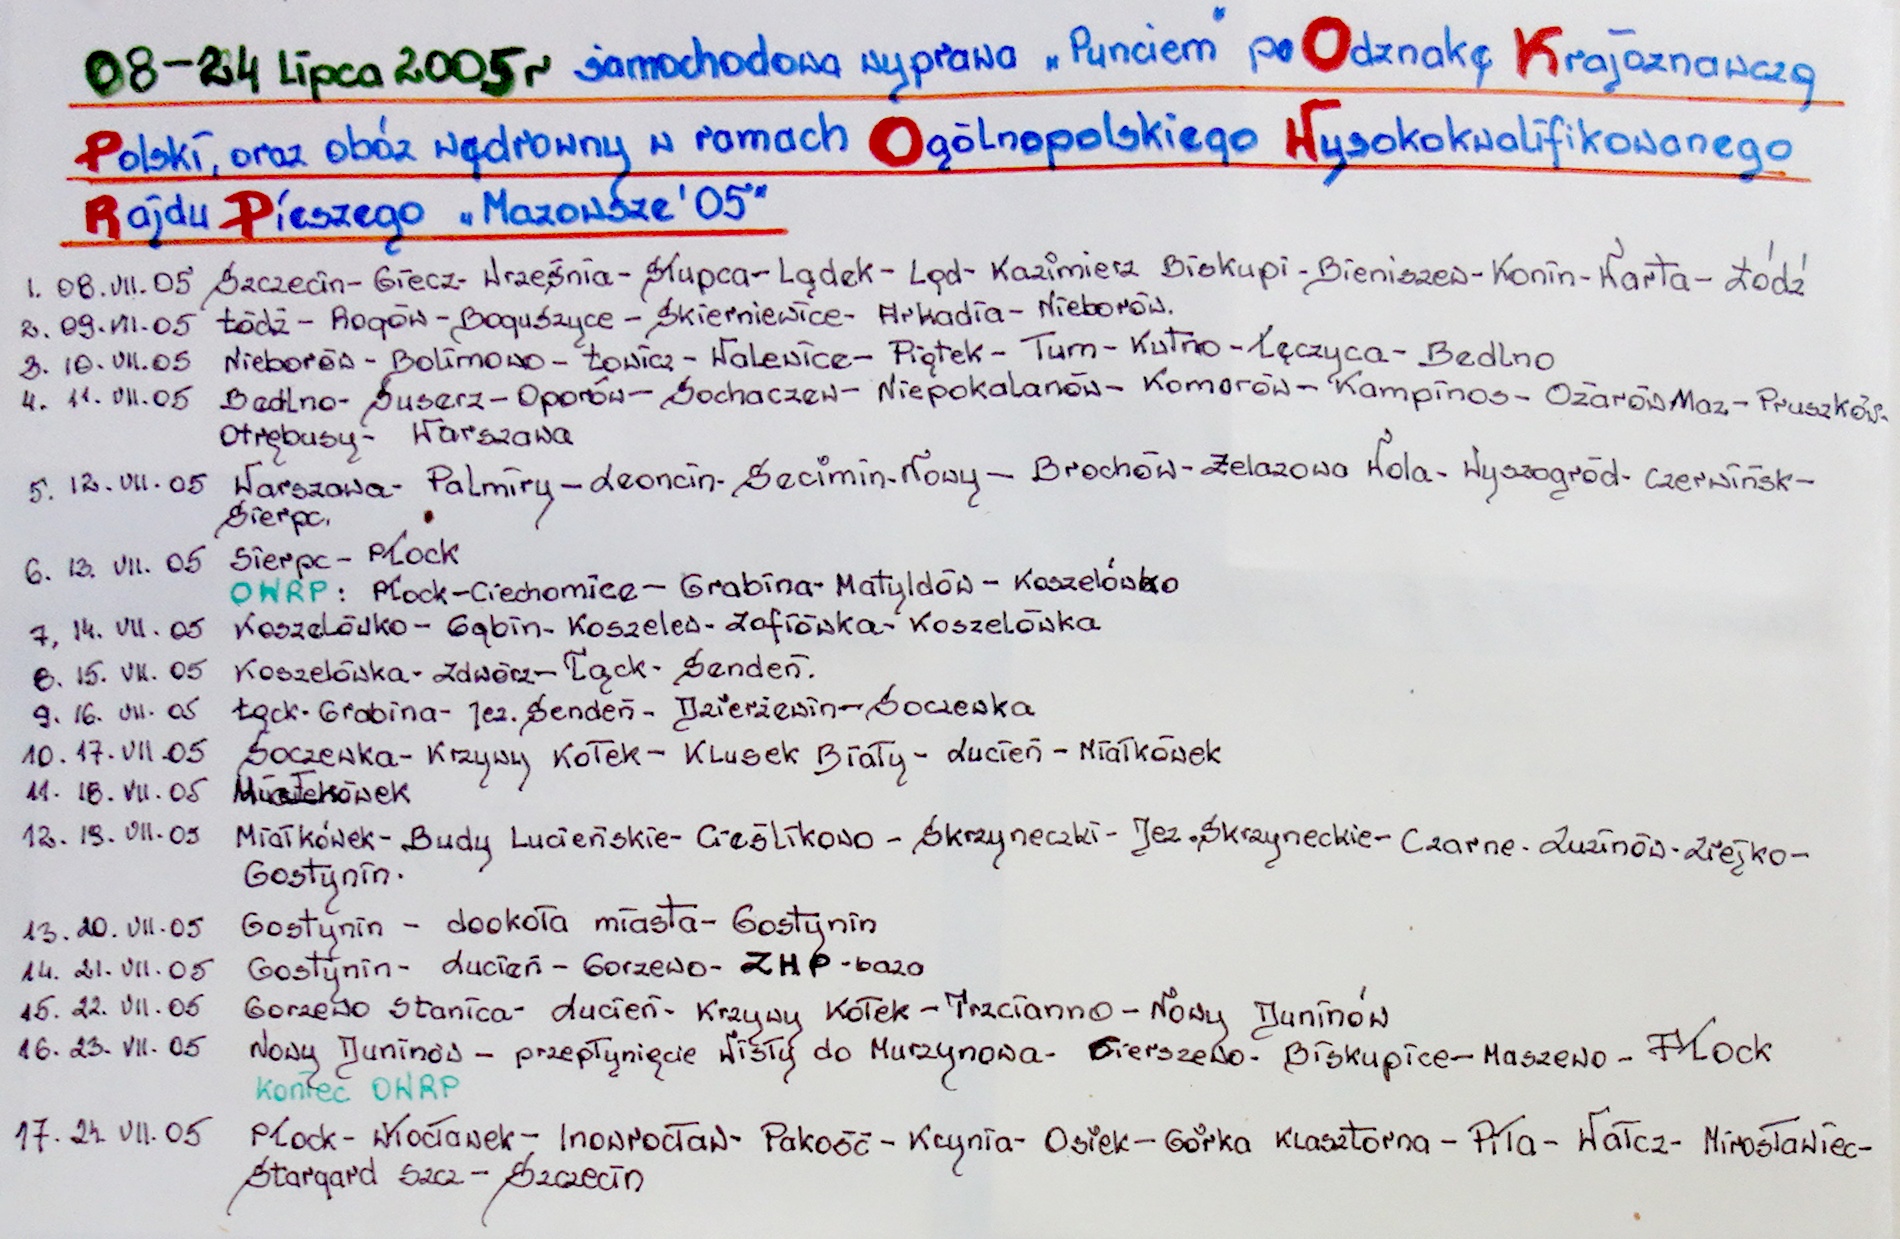 08-24 Lipca 2005r samochodowa wyprawa „Punciem" po Odznakę Krajoznawczą
Polski, oraz obóz wędrowny w ramach Ogólnopolskiego Wysokokwalifikowanego
Rajdu Pieszego „Mazowsze '05"
1. 08.VII.05 Szczecin- Giecz- Września- Słupca- Lądek- Ląd- Kazimierz Biskupi- Bieniszew- Konin- Warta- Łódź
2. 09.VII.05 Łódź - Rogów- Boguszyce - Skierniewice- Arkadia- Nieborów.
3. 10.VII.05 Nieborów - Bolimowo- Łowicz- Walewice- Piątek- Tum- Kutno- Łęczyca- Bedlno
4. 11.VII.05 Bedlno- Suserz- Oporów- Sochaczew- Niepokalanów- Komorów- Kampinos- Ożarów Maz.- Pruszków-
Otrębusy- Warszawa
5. 12.VII.05 Warszawa- Palmiry- Leoncin- Secimin-Nowy- Brochów- Żelazowa Wola- Wyszogród- Czerwińsk-
Sierpc.
6. 13. VII. 05 Sierpc- Płock
OWRP: Płock-Ciechomice- Grabina- Matyldów- Koszelówko
7, 14. VII. 05 Koszelówko- Gąbin- Koszelew- Zofiówka- Koszelówka
8. 15. VII. 05 Koszelówka- Zdwórz- Łąck- Sendeń.
9. 16. VII. 05 Łąck- Grabina- Jez. Sendeń- Dzierżewin- Soczewka
10. 17. VII.05 Soczewka- Krzywy Kołek- Klusek Biały- Lucień- Miałkówek
11. 18. VII. 05 Miałkówek
12. 19. VII.05 Miałkówek- Budy Lucieńskie- Cieślikowo- Skrzyneczki- Jez. Skrzyneckie- Czarne- Luzinów- Ziejko-
Gostynin.
13. 20. VII.05 Gostynin - dookoła miasta- Gostynin
14. 21. VII. 05 Gostynin- Lucień- Gorzewo- ZHP-baza
15. 22. VII. 05 Gorzewo Stanica- Lucień- Krzywy Kołek- Trzcianno- Nowy Duninów
16. 23. VII. 05 Nowy Duninów - przepłynięcie Wisły do Murzynowa- Sierszewo- Biskupice- Maszewo- Płock
Koniec OWRP
17. 24 VII.05 Płock- Włocławek- Inowrocław- Pakość- Kcynia- Osiek- Górka Klasztorna- Piła- Wałcz- Mirosławiec-
Stargard Szcz- Szczecin